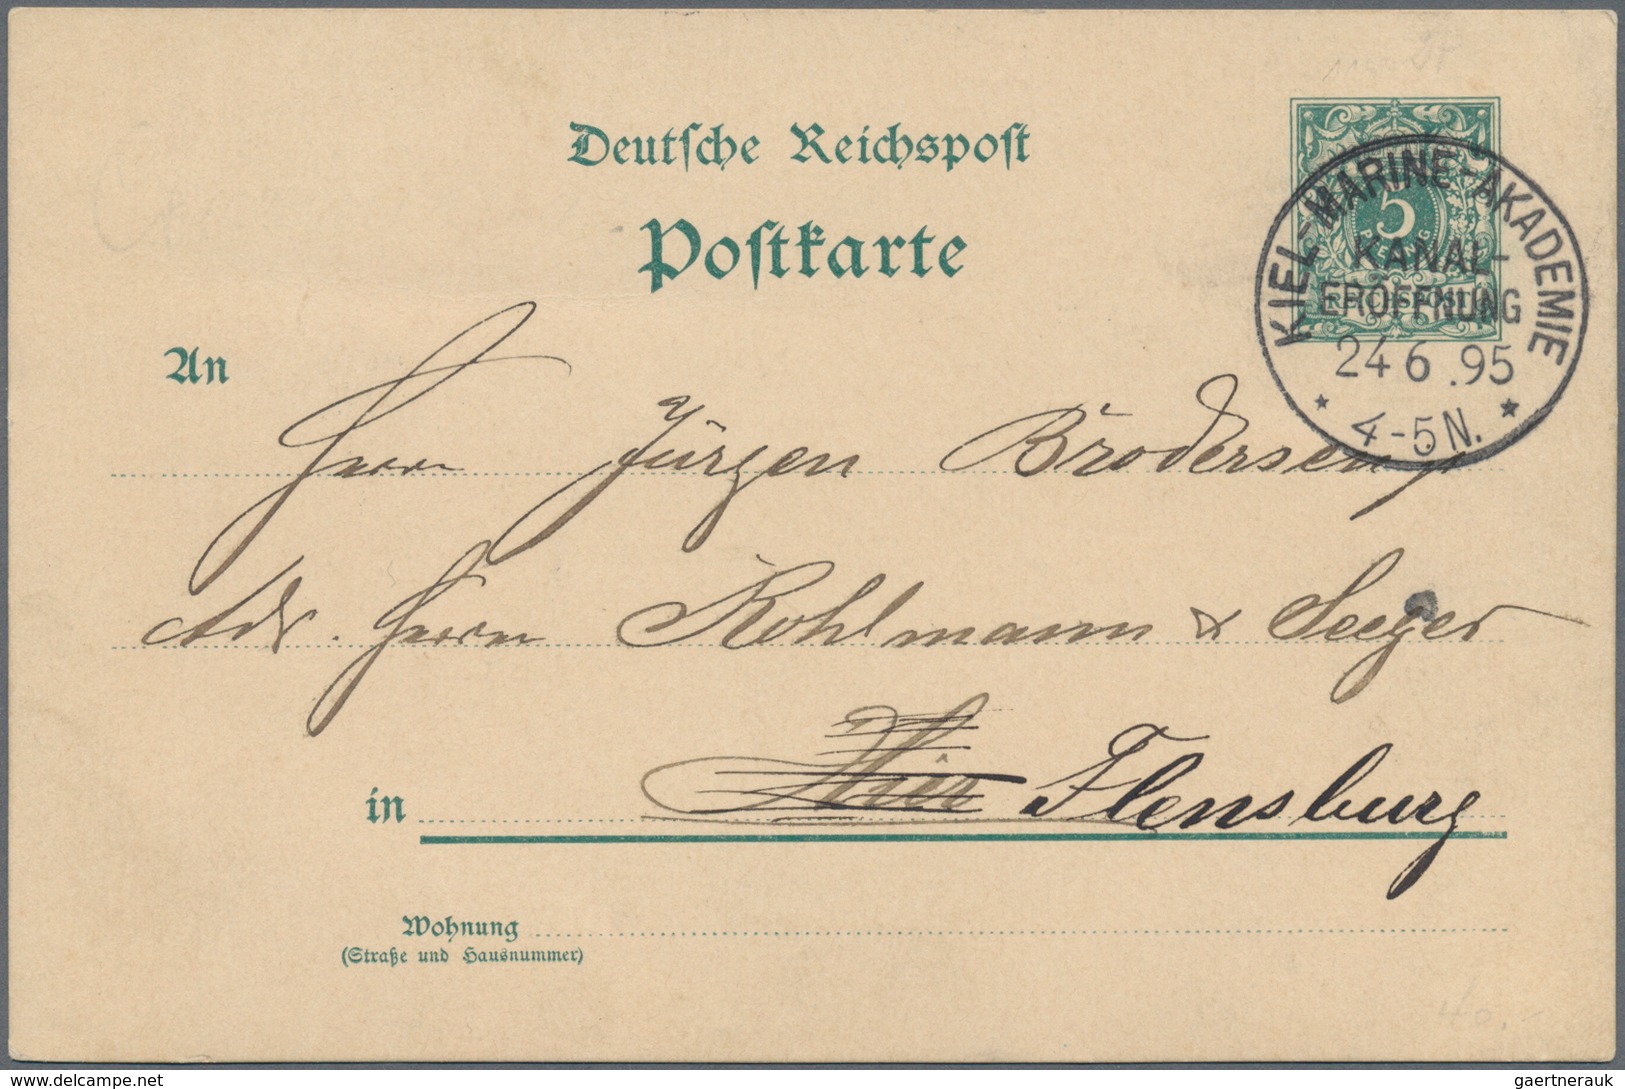 Deutsche Reichspost
Postkarte
5
PFENNIG
REICHSPOST
KIEL-MARINE-AKADEMIE
KANAL-
ERÖFFNUNG
24 6 .95
* 4-5N. *
An
Herrn Jürgen Brodersen
Adr. Herren Kohlmann & Seeger
in Hier Flensburg
Wohnung
(Straße und Hausnummer)
40.-
www.delcampe.net
gaertnerauk